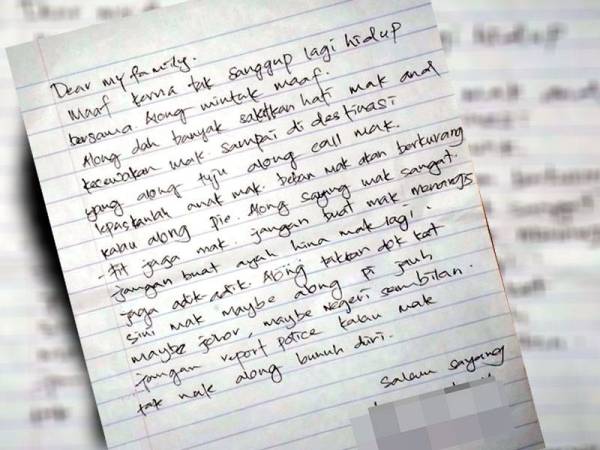 Dear my family.
Maaf kerna tak sanggup lagi hidup
bersama. Along mintak maaf.
Along dah banyak sakitkan hati mak and
kecewakan mak. sampai di destinasi
yang along tuju along call mak.
lepaskanlah anak mak. beban mak akan berkurang
kalau along pie. Along sayang mak sangat.
tit jaga mak. jangan buat mak menangis
jangan buat ayah hina mak lagi.
jaga adik-adik. Along takkan dok kat
sini mak maybe along pi jauh
maybe johor, maybe negeri sembilan.
jangan report police kalau mak
tak nak along bunuh diri.
Salam sayang